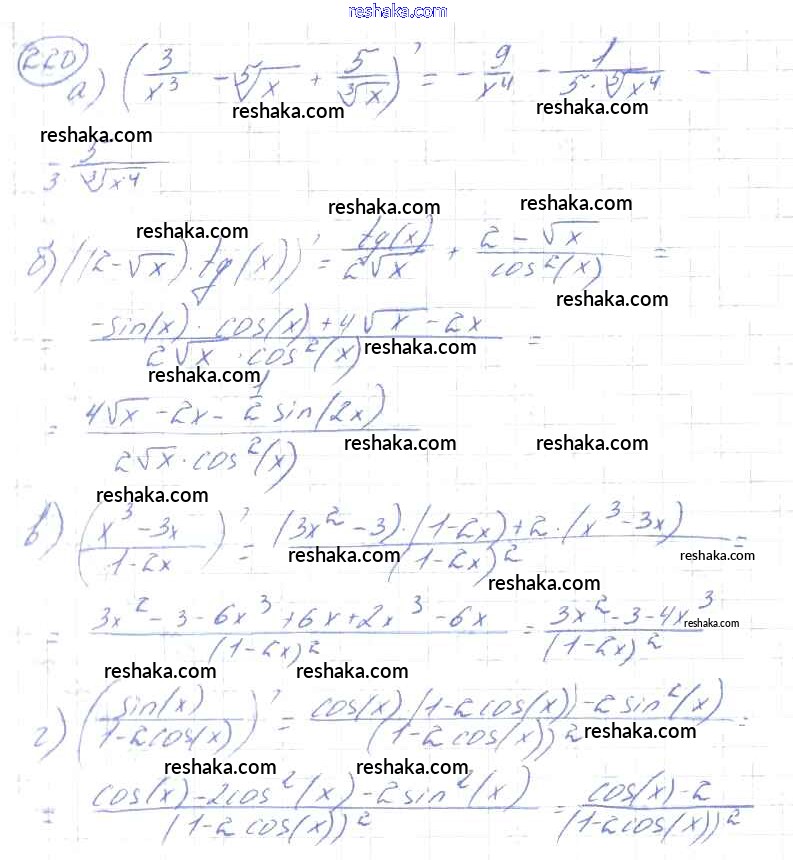 reshaka.com
220
а) (3/x³ - ⁵√x + 5/³√x)' = - 9/x⁴ - 1/(5·⁵√x⁴) -
reshaka.com reshaka.com
reshaka.com
- 5/(3·³√x⁴)
reshaka.com reshaka.com reshaka.com
б) ((2-√x)·tg(x))' = tg(x)/(2√x) + (2-√x)/cos²(x) =
reshaka.com
= (-sin(x)·cos(x)+4√x-2x)/(2√x·cos²(x)) =
reshaka.com
reshaka.com
= (4√x-2x-½sin(2x))/(2√x·cos²(x))
reshaka.com reshaka.com
reshaka.com
в) ((x³-3x)/(1-2x))' = ((3x²-3)·(1-2x)+2·(x³-3x))/(1-2x)² =
reshaka.com reshaka.com
reshaka.com
= (3x²-3-6x³+6x+2x³-6x)/(1-2x)² = (3x²-3-4x³)/(1-2x)²
reshaka.com
reshaka.com reshaka.com
г) (sin(x)/(1-2cos(x)))' = (cos(x)(1-2cos(x))-2sin²(x))/(1-2cos(x))² =
reshaka.com
reshaka.com reshaka.com
= (cos(x)-2cos²(x)-2sin²(x))/(1-2cos(x))² = (cos(x)-2)/(1-2cos(x))²